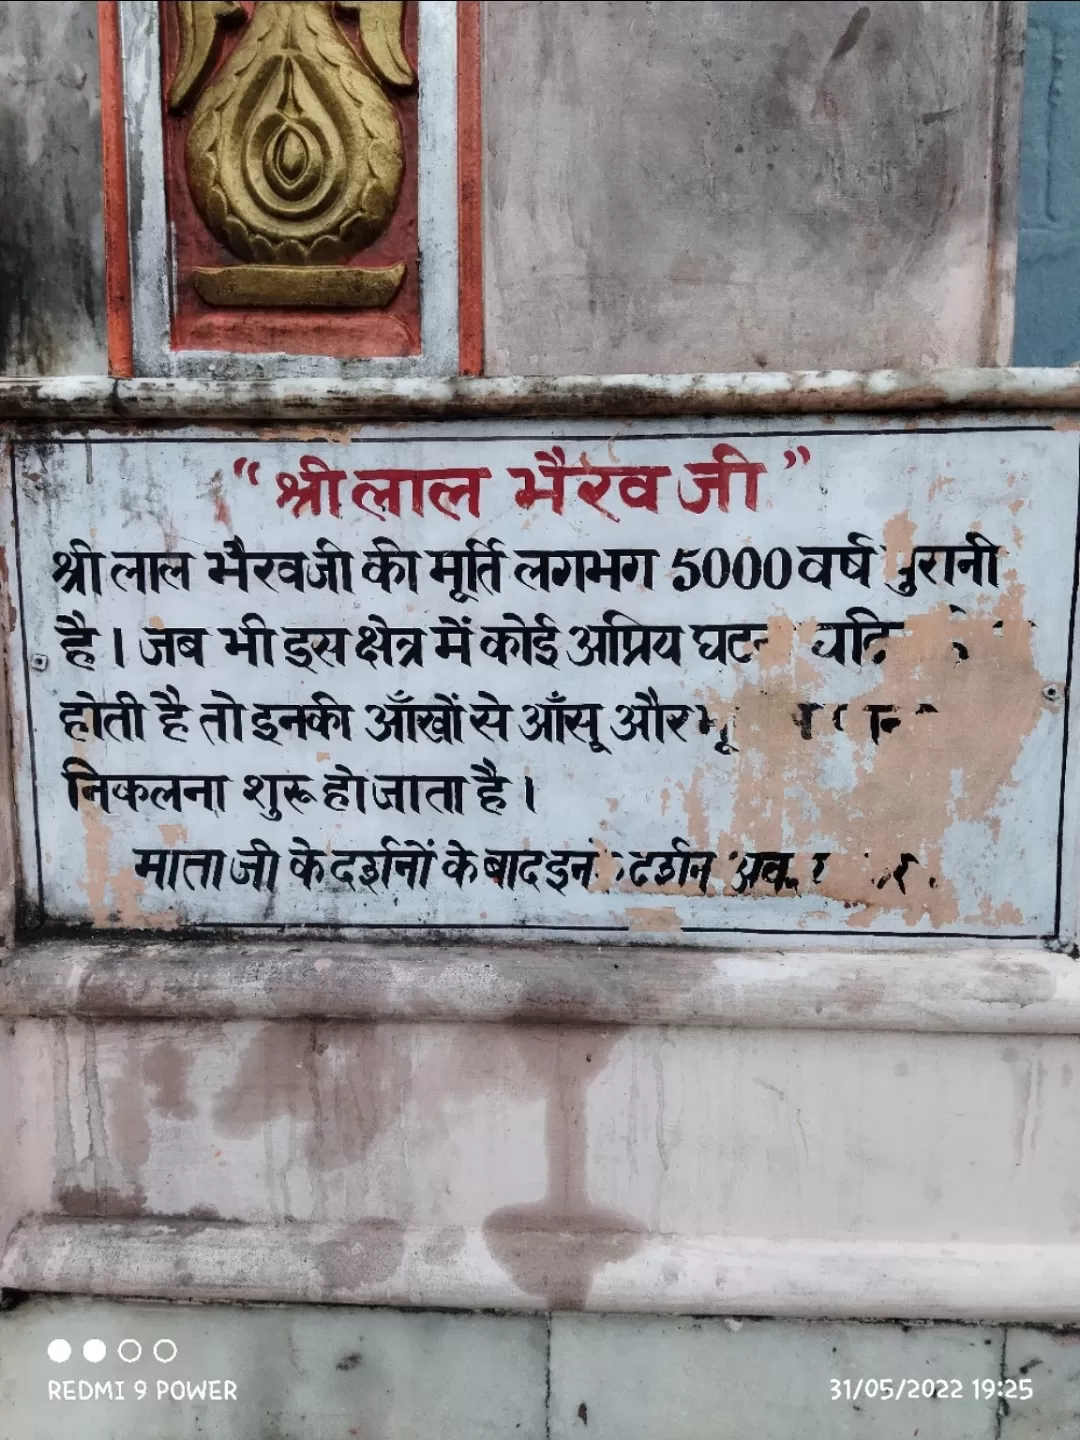 “श्री लाल भैरव जी”
श्री लाल भैरवजी की मूर्ति लगभग 5000 वर्ष पुरानी
है। जब भी इस क्षेत्र में कोई अप्रिय
होती है तो इनकी आँखों से आँसू और
निकलना शुरू हो जाता है।
माता जी के दर्शनों के बाद दर्शन
REDMI 9 POWER
31/05/2022 19:25